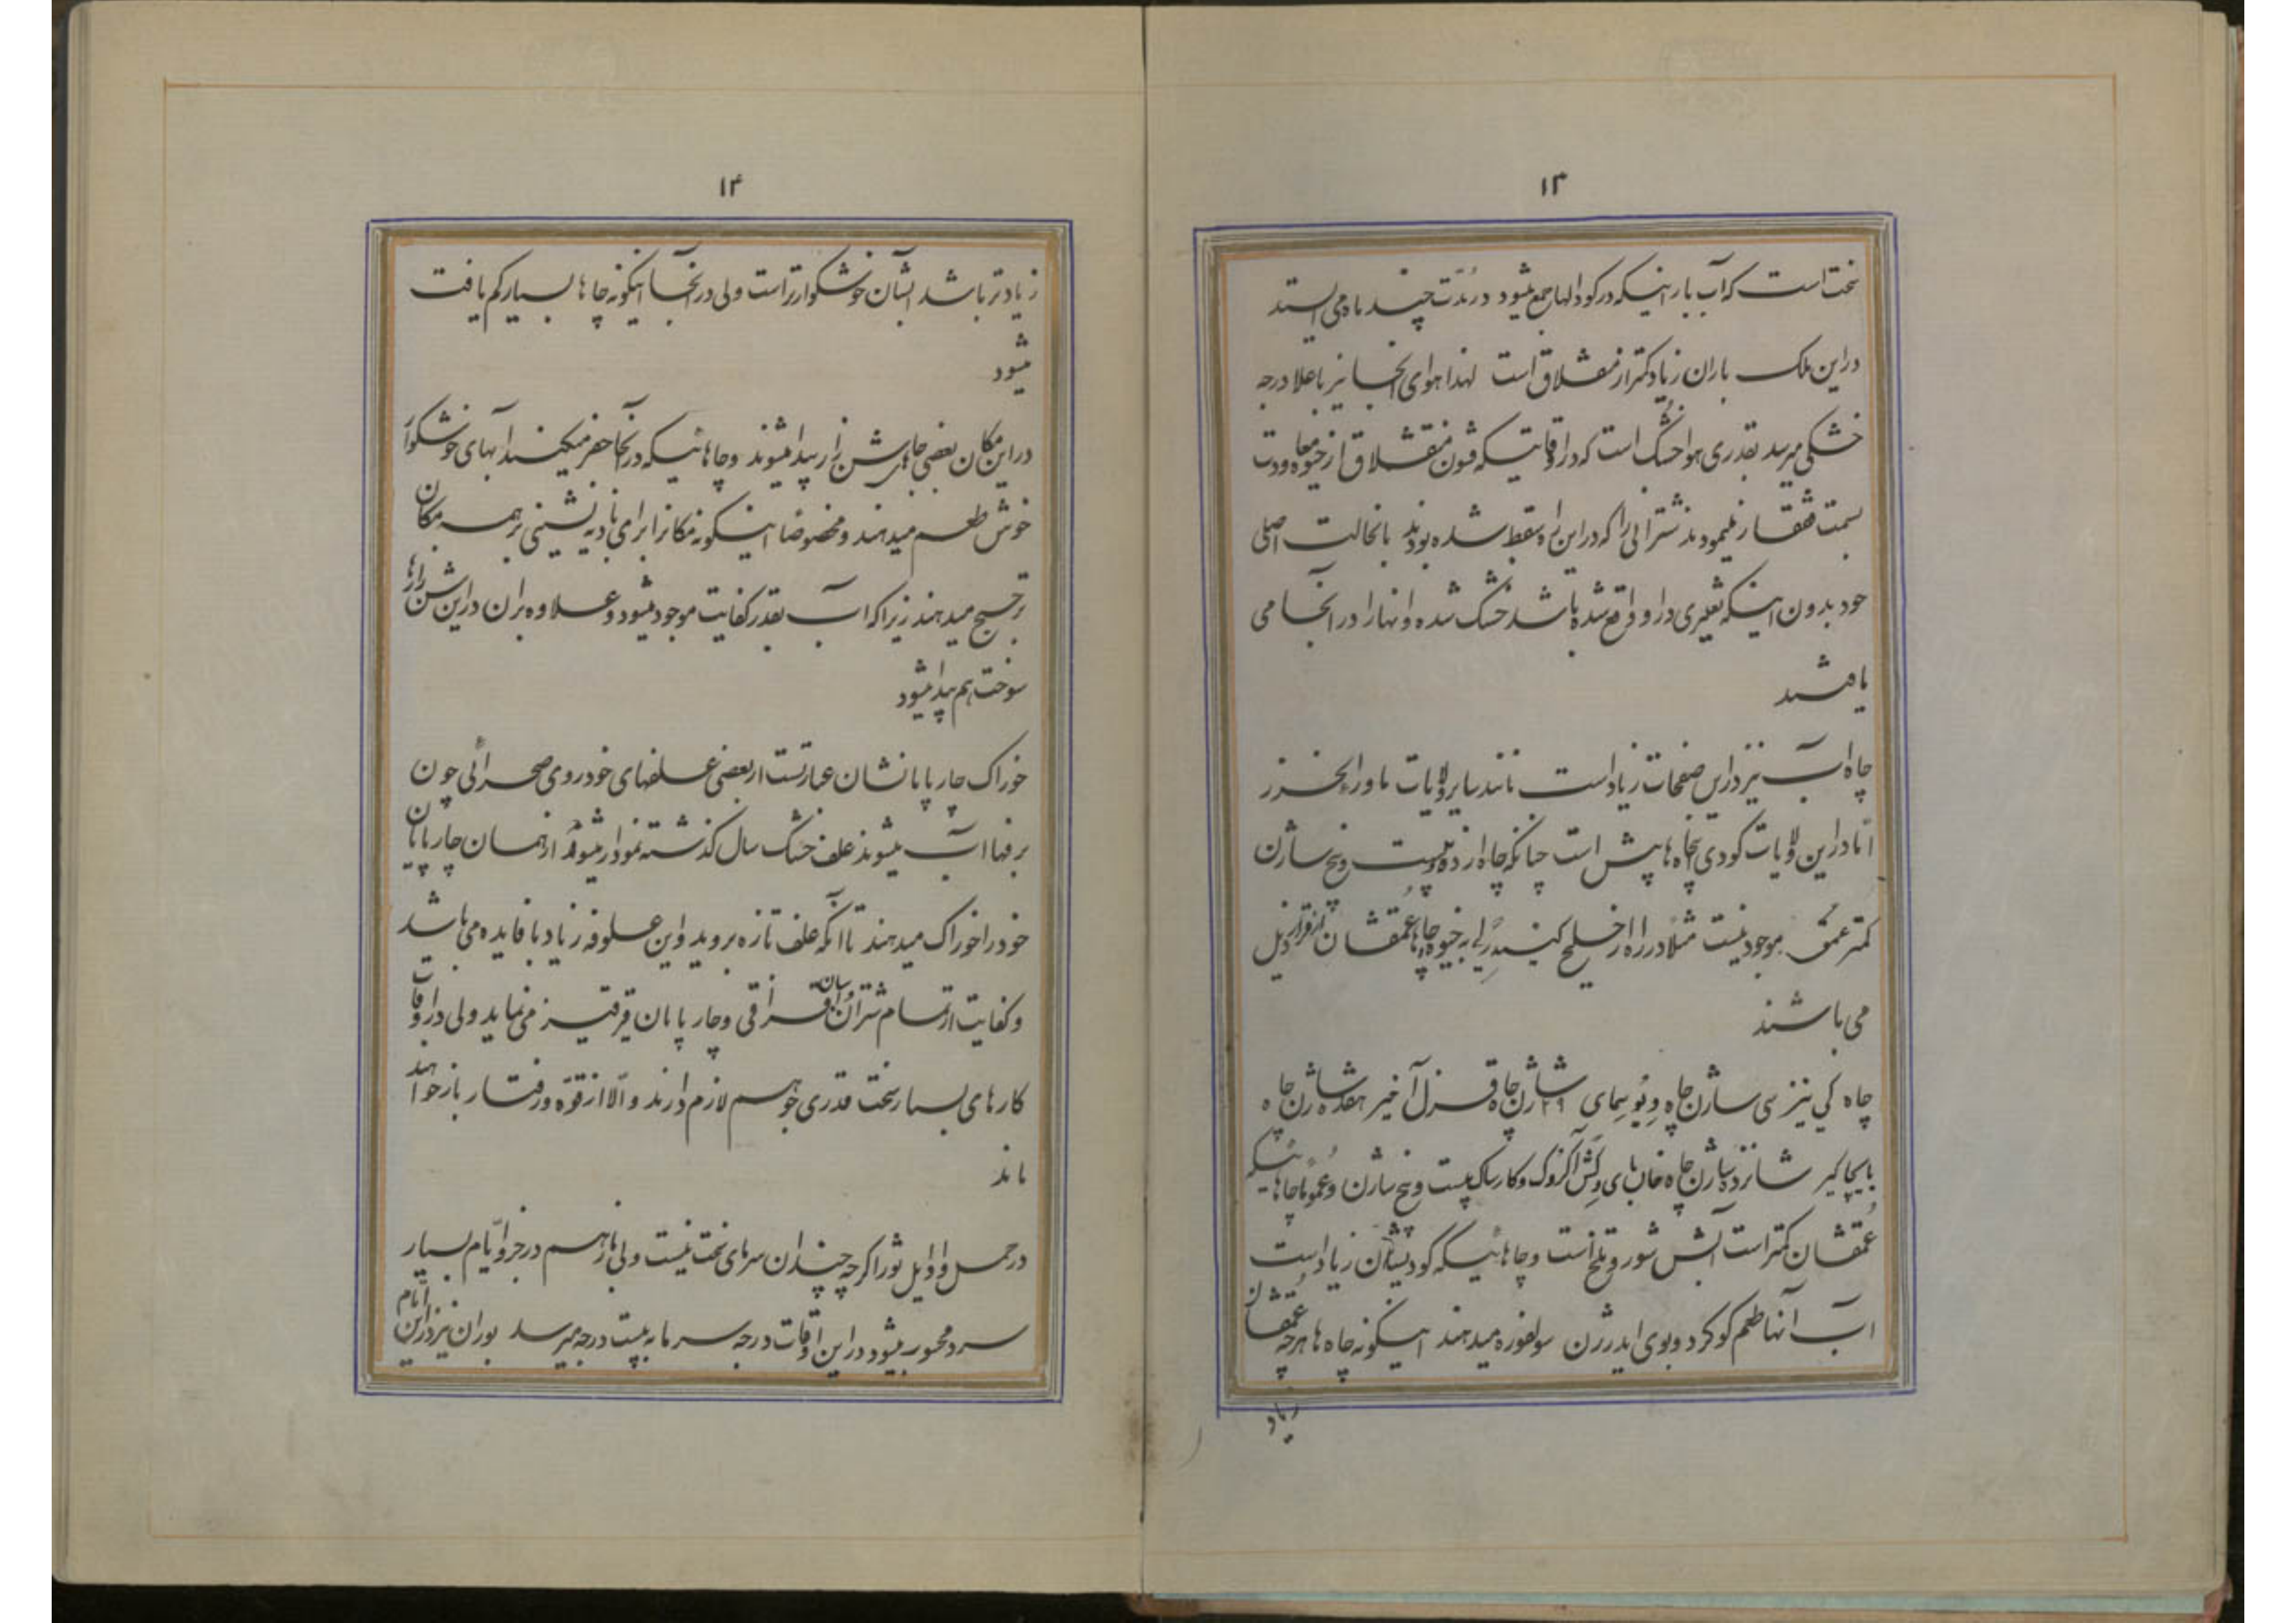 ۱۳
سخت است که آب بارانیکه در کودالها جمع میشود در مدّت چند ماه می ایستد
در این ملک باران زیاد کمتر از منقشلاق است لهذا هوای آنجا نیز باعلا درجه
خشکی میرسد بقدری هوا خشک است که در اوقاتیکه قشون منقشلاق از خیوه معاودت
بسمت قفقاز مینمودند شترانی را که در این راه سقط شده بودند بانحالت اصلی
خود بدون اینکه تغییری در او واقع شده باشد خشک شده و آنها را در آنجا می
یافتند
چاه آب نیز در این صفحات زیاد است مانند سایر ولایات ماوراءالخزر
امّا در این ولایات کودی چاه ها بیش است چنانکه چاه از ده و بیست و پنج سازن
کمتر عمق موجود نیست مثلا در راه از خلیج کیندرلی به خیوه چاها عمقشان از قرار ذیل
می باشند
چاه کی نیز سی ساژن چاه و یوسمای ۲۹ ساژن چاه قزل آخیر هفده ساژن چاه
بایچاکیر شانزده ساژن چاه خان بای وکش آکزوک وکارساک بیست و پنج ساژن و عموما چاهائیکه
عمقشان کمتر است آبش شور و تلخ است و چاهائیکه کودیشان زیاد است
آب آنها طعم کوکرد و بوی ایدرژن سولفوره میدهند اینگونه چاه ها هرچه عمقشان
زیاد
۱۴
زیادتر باشد آبشان خوشکوارتر است ولی در آنجا اینکونه چاها بسیار کم یافت
میشود
در این مکان بعضی جاهای شن زار پیدا میشوند و چاهائیکه در آنجا حفر میکنند آبهای خوشکوار
خوش طعم میدهند و مخصوصا اینکونه مکانرا برای بادیه نشینی بر همه مکان
ترجیح میدهند زیرا که آب بقدر کفایت موجود میشود و علاوه بران در این شن زارها
سوخت هم پیدا میشود
خوراک چارپایانشان عبارتست از بعضی علفهای خودروی صحرائی چون
برفها آب میشوند علف خشک سال کذشته نمودار میشود از همان چارپایان
خود را خوراک میدهند تا آنکه علف تازه بروید و این علوفه زیاد با فایده می باشد
و کفایت از تمام شتران و اسبان قزاقی و چارپایان قرقیز می نماید ولی در اوقات
کارهای بسیار سخت قدری جو هم لازم دارند و الّا از قوّه و رفتار باز خواهند
ماند
در حمل و اوایل ثور اکرچه چندان سرمای سخت نیست ولی باز هم در جزو ایّام بسیار
سرد محسوب میشود در این اوقات درجه سرما به بیست درجه میرسد بوران نیز در این ایّام